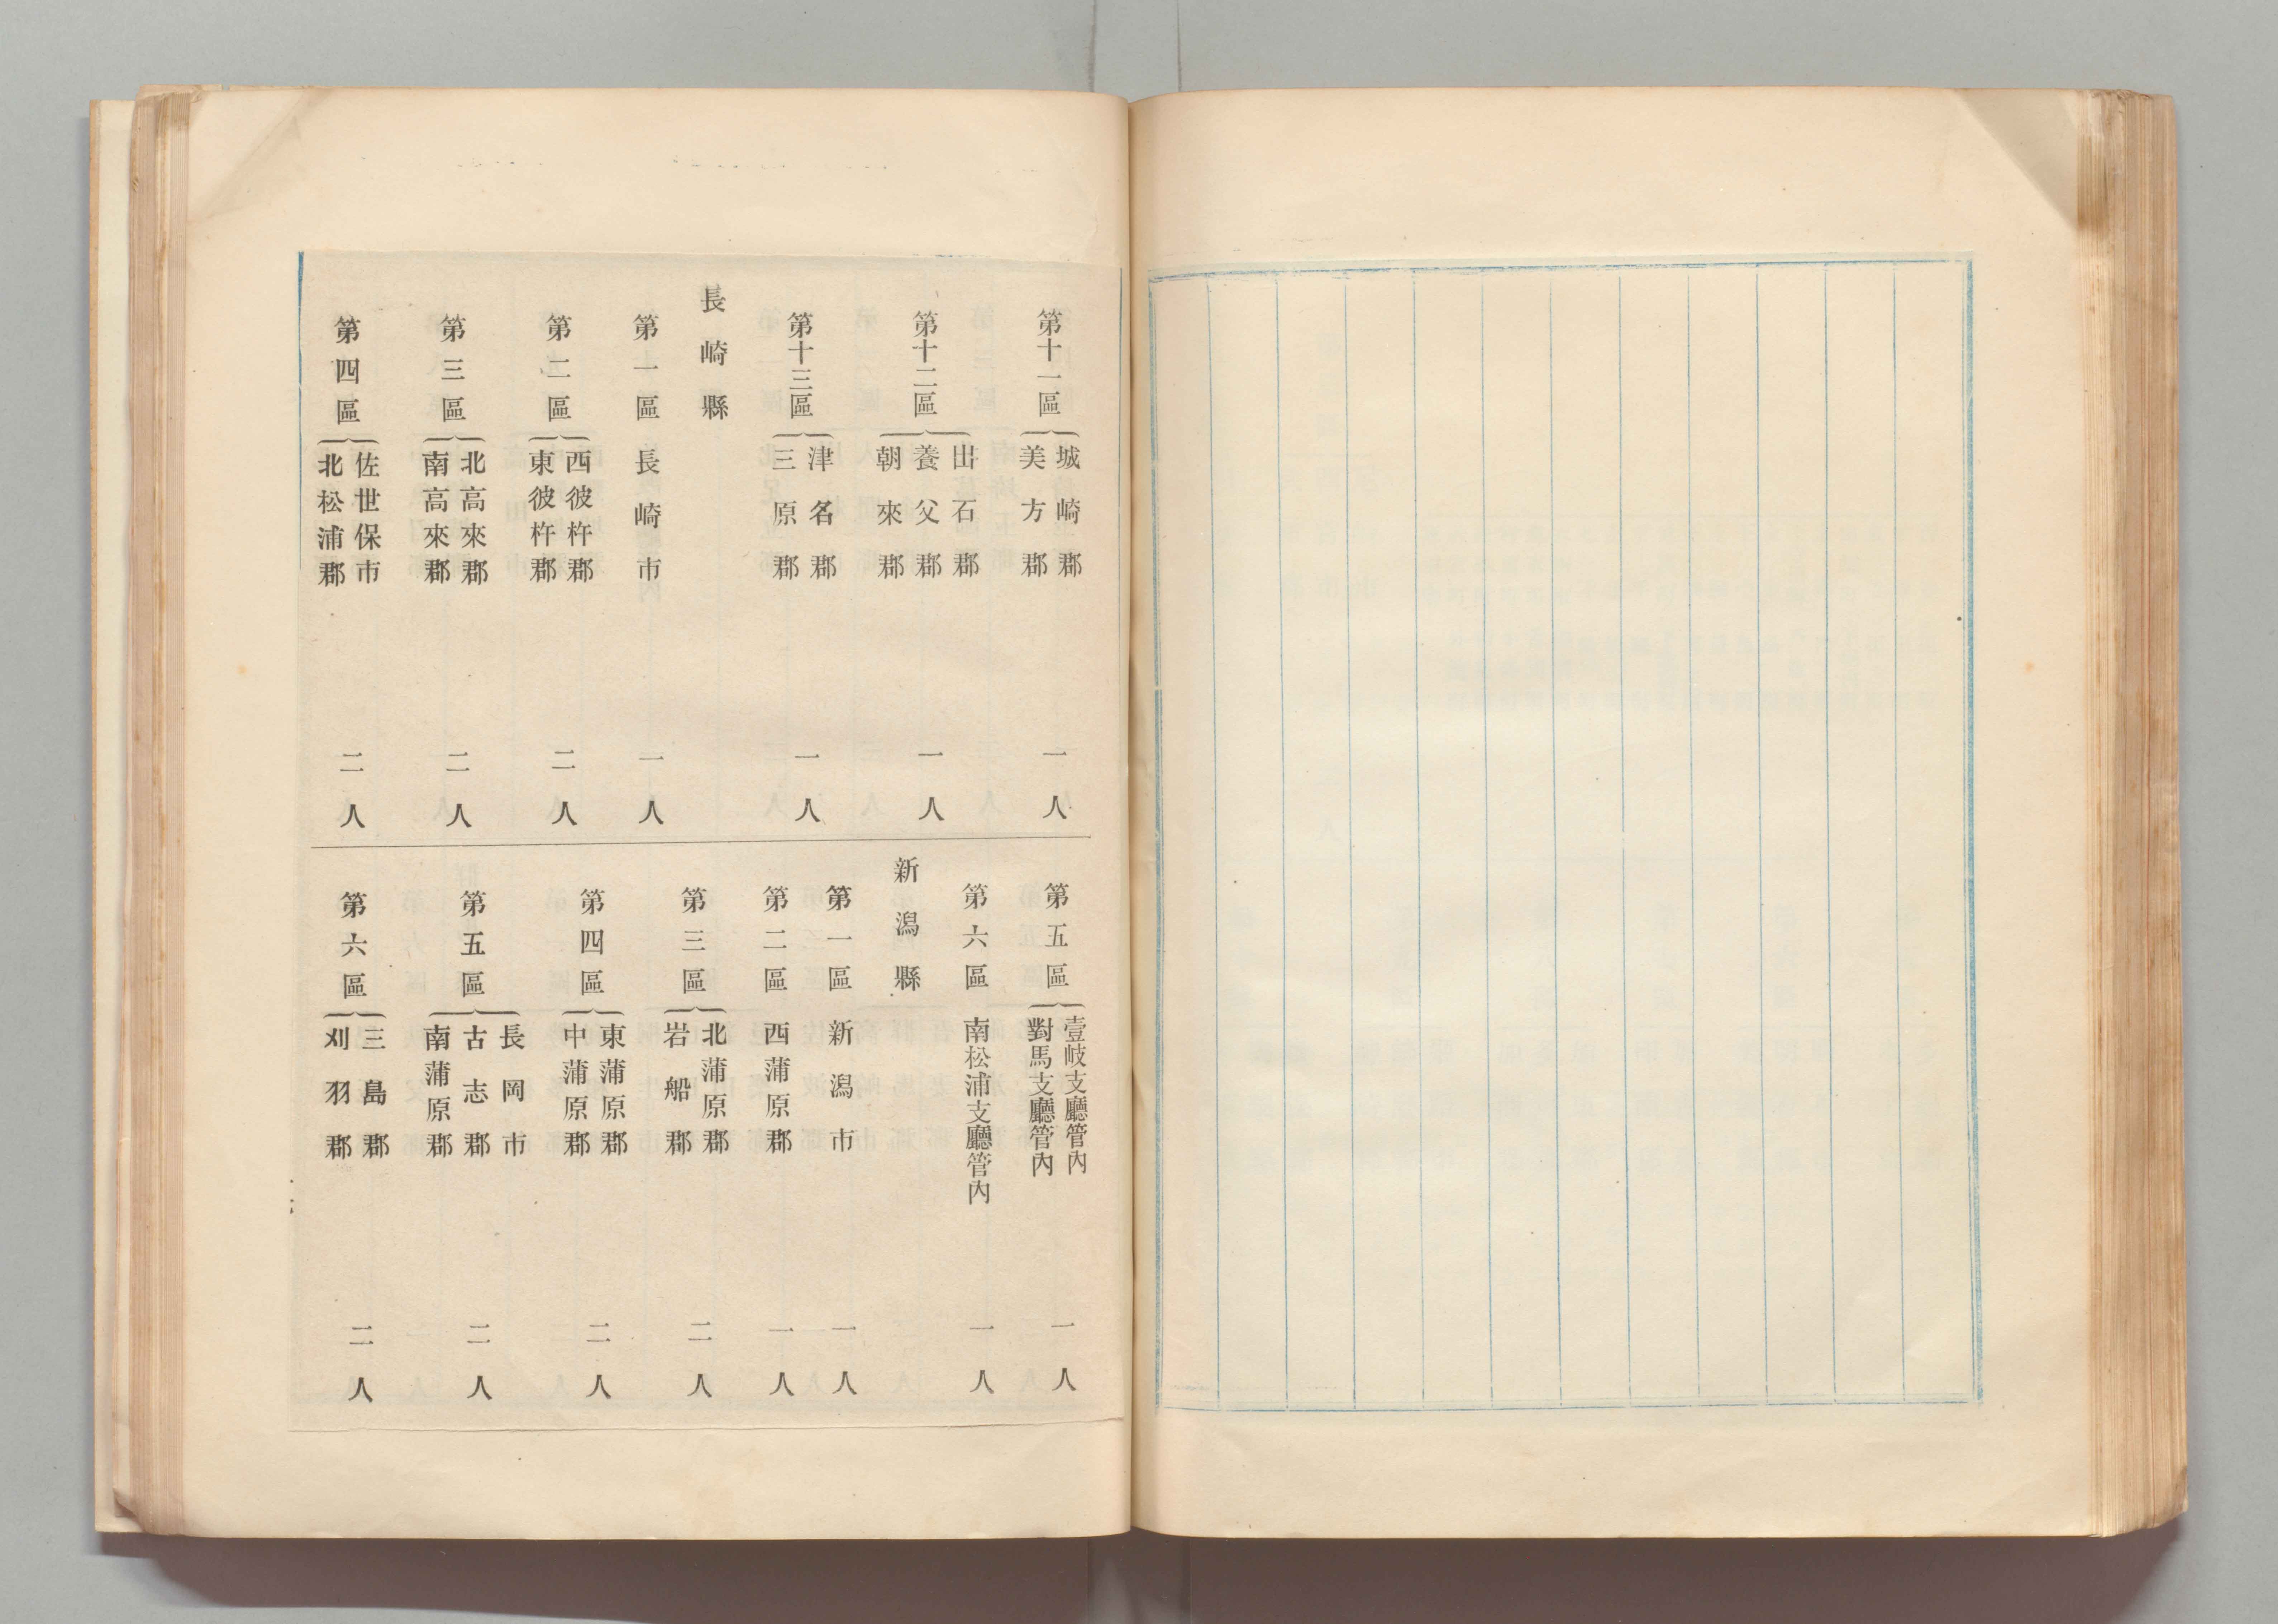 第十一區
城崎郡
美方郡
一人
第十二區
出石郡
養父郡
朝來郡
一人
第十三區
津名郡
三原郡
一人
長崎縣
第一區
長崎市
一人
第二區
西彼杵郡
東彼杵郡
二人
第三區
北高來郡
南高來郡
二人
第四區
佐世保市
北松浦郡
二人
第五區
壹岐支廳管內
對馬支廳管內
一人
第六區
南松浦支廳管內
一人
新潟縣
第一區
新潟市
一人
第二區
西蒲原郡
一人
第三區
北蒲原郡
岩船郡
二人
第四區
東蒲原郡
中蒲原郡
二人
第五區
長岡市
古志郡
南蒲原郡
二人
第六區
三島郡
刈羽郡
二人